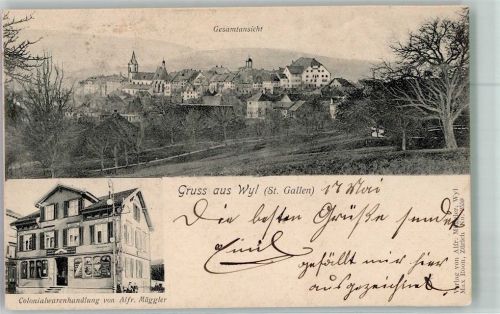 Gesamtansicht
Gruss aus Wyl (St. Gallen) 17 Mai
Die besten Grüße sendet
Emil
gefällt mir hier
ausgezeichnet
Colonialwarenhandlung von Alfr. Mäggler
Verlag von Alfr. Mäggler, Wyl
Max Boom, Zürich